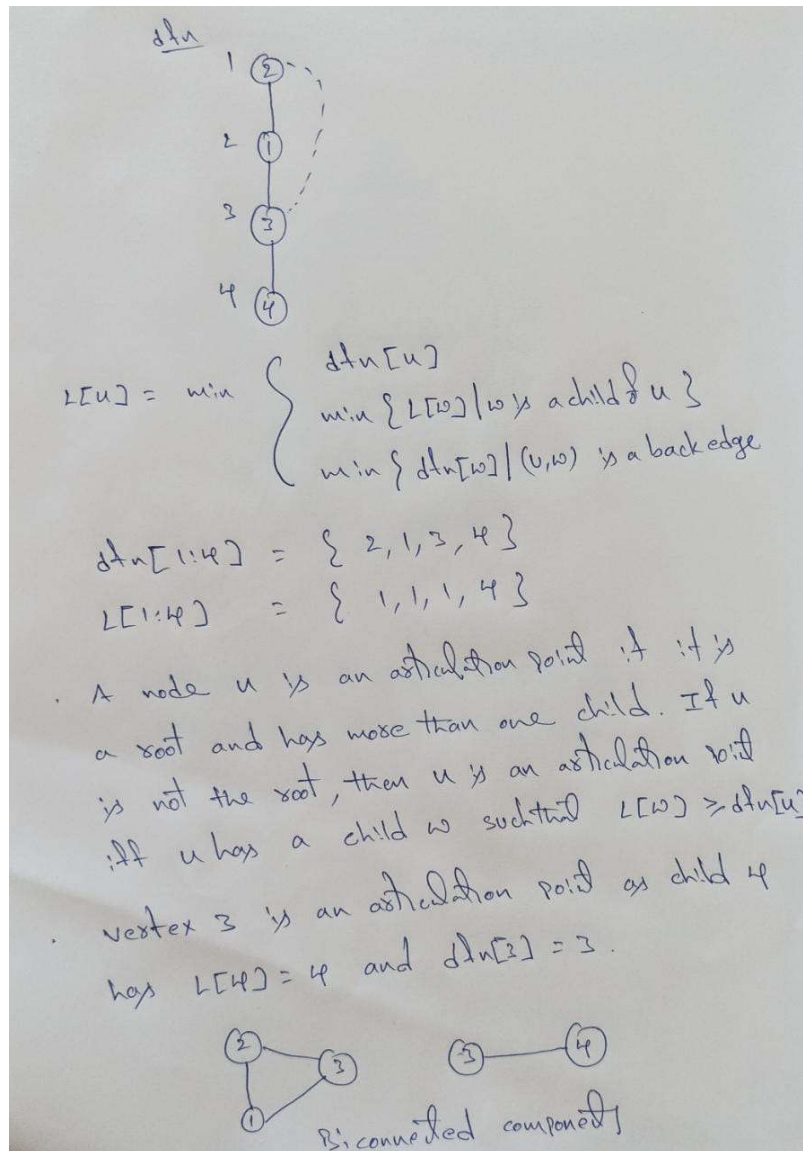 dfn
1 2
2 1
3 3
4 4
L[u] = min { dfn[u]
min { L[w] | w is a child of u }
min { dfn[w] | (u,w) is a back edge
dfn[1:4] = { 2, 1, 3, 4 }
L[1:4] = { 1, 1, 1, 4 }
. A node u is an articulation point if it is
a root and has more than one child. If u
is not the root, then u is an articulation point
iff u has a child w such that L[w] ≥ dfn[u]
. vertex 3 is an articulation point as child 4
has L[4] = 4 and dfn[3] = 3.
2 3 3 4
1
Biconnected components